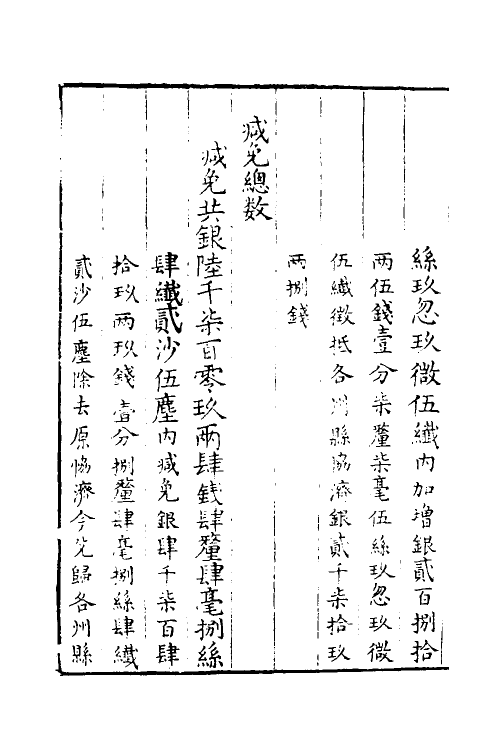 絲玖忽玖微伍纖内加增銀貳百捌拾
兩伍錢壹分柒釐柒毫伍絲玖忽玖微
伍纖徵抵各州縣協濟銀貳千柒拾玖
兩捌錢
减免總数
减免共銀陸千柒百零玖兩肆錢肆釐肆毫捌絲
肆纖貳沙伍塵内减免銀肆千柒百肆
拾玖兩玖錢壹分捌釐肆毫捌絲肆纖
貳沙伍塵除去原協濟今免歸各州縣